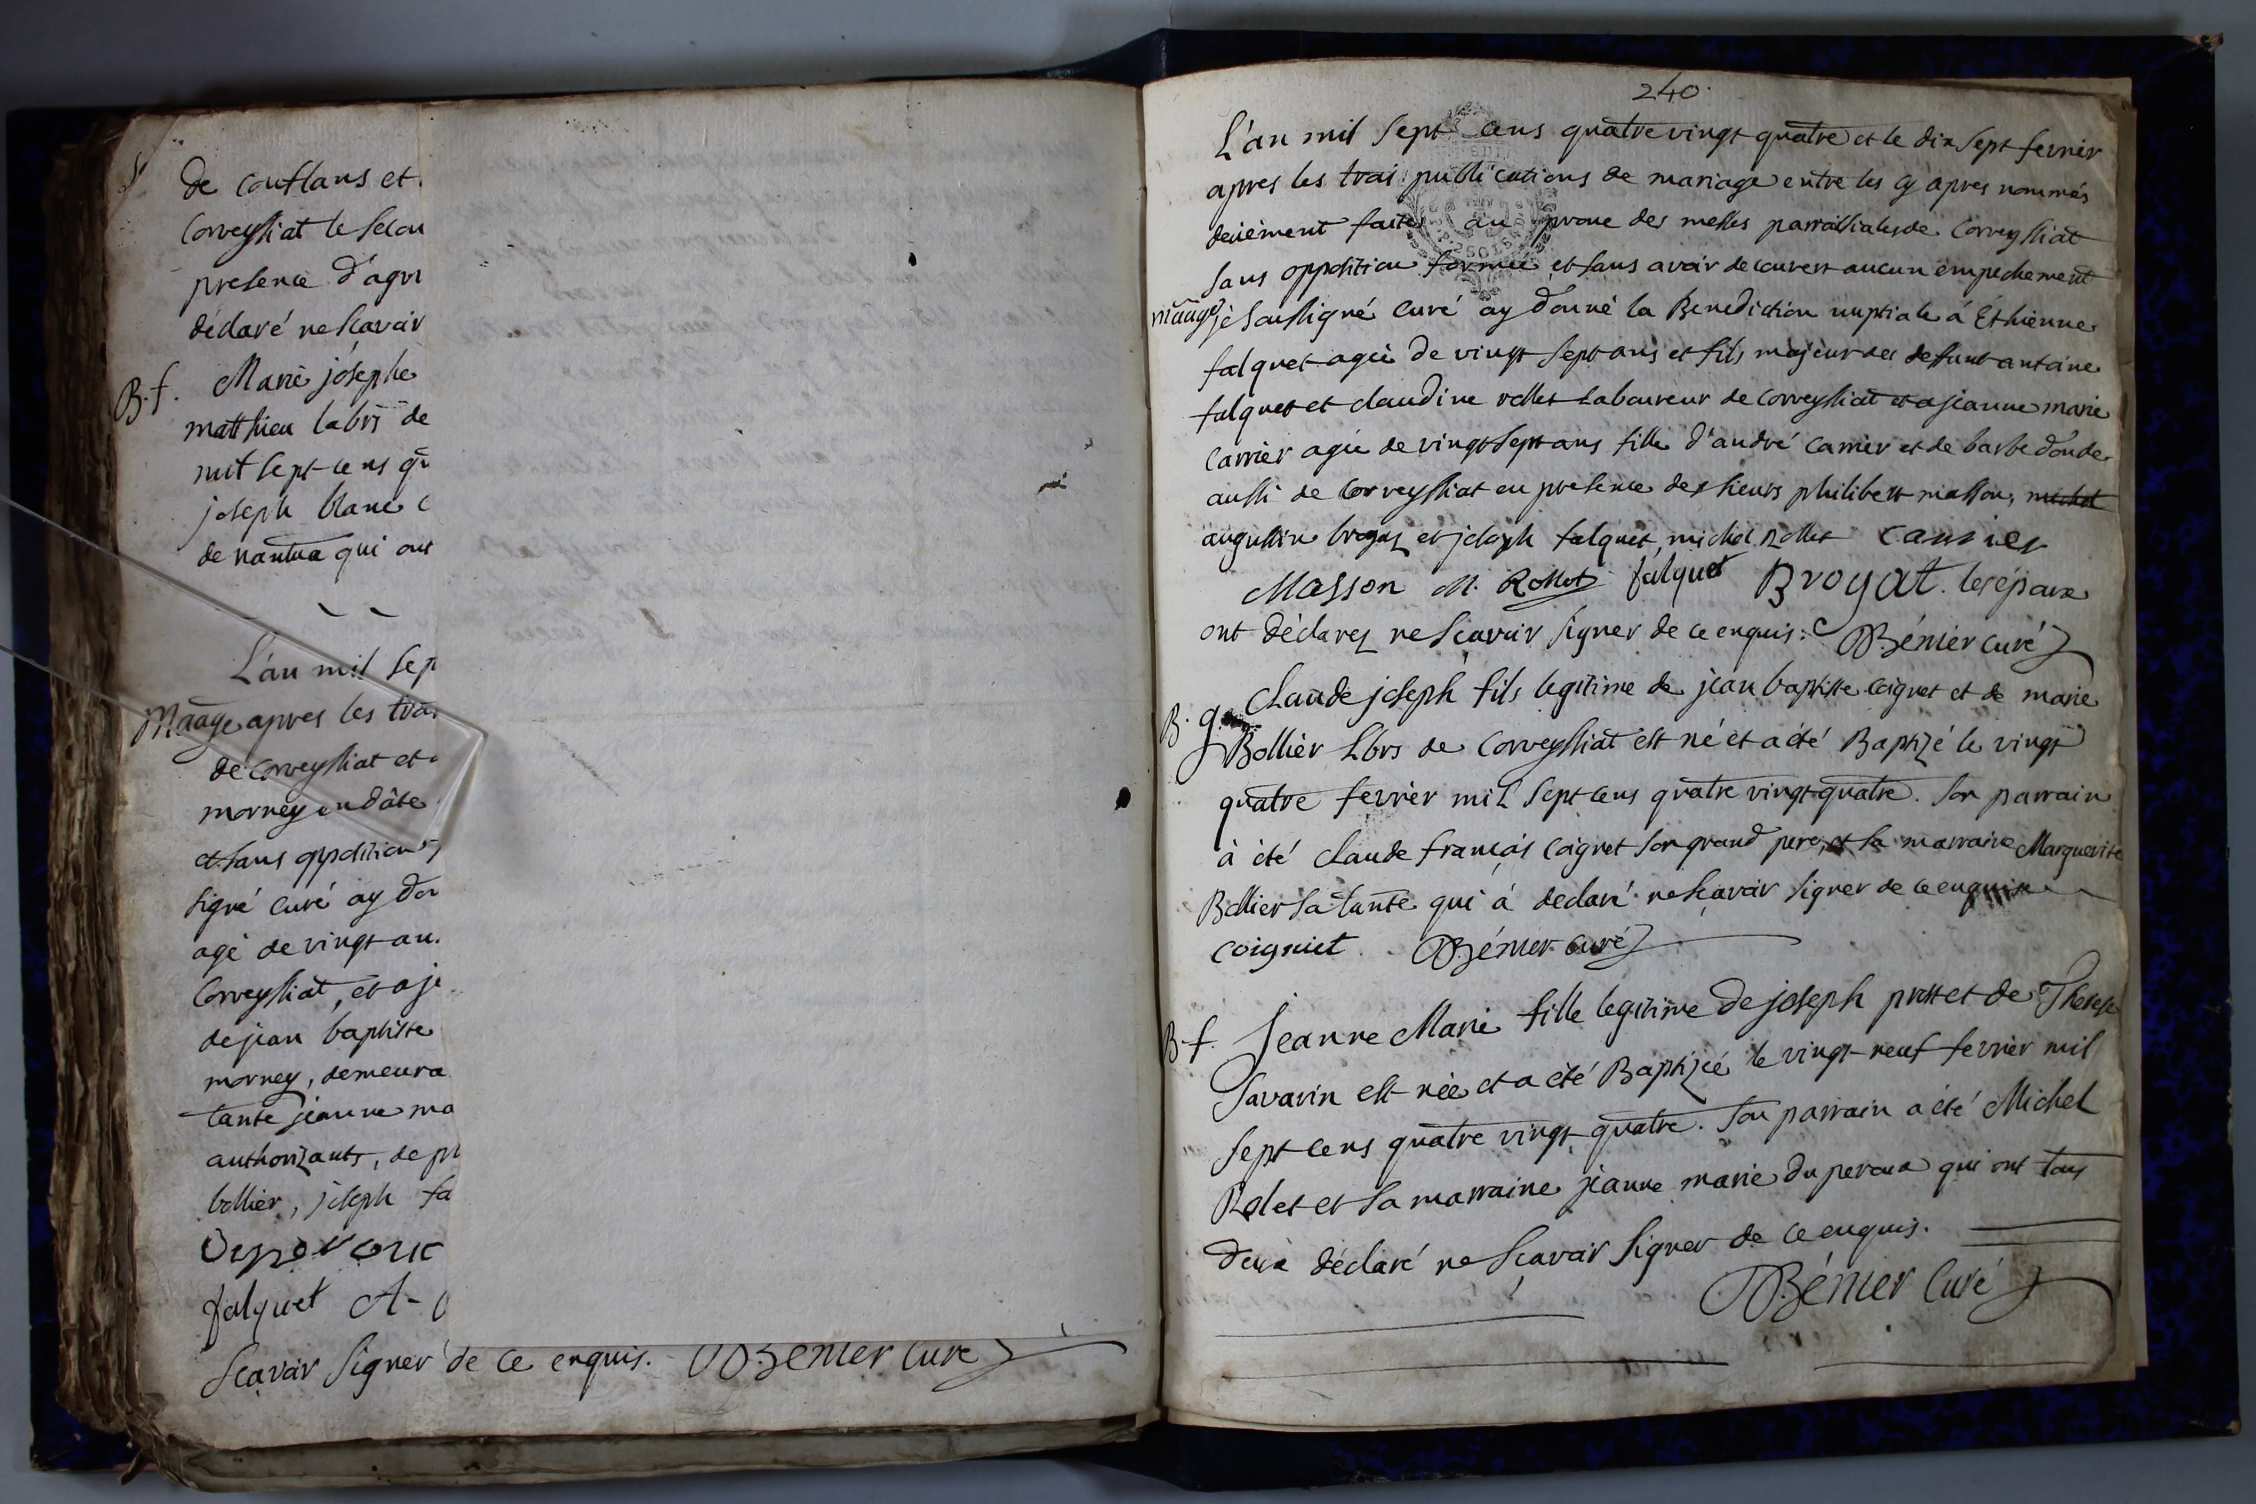 de conflans et
Corveyssiat le secon
presence d'agri
déclaré ne scavoir
B. f. Marie josephe
matthieu labrs de
mil sept cens qu
joseph blanc c
de nantua qui ont
L'an mil sep
Maage apres les troi
de corveyssiat et
morney en dâte
et sans opposition
signé curé ay don
agé de vingt an
Corveyssiat, et a je
de jean baptiste
morney, demeura
tante jeanne ma
authorizants, de pr
bollier, joseph fa
falquet A-
Scavoir signer de ce enquis. Bénier Curé
240.
L'an mil sept cens quatre vingt quatre et le dix sept fevrier
apres les trois publications de mariage entre les cy apres nommés
deüement faites au prone des messes parroissiales de Corveyssiat
sans opposition formée et sans avoir decouvert aucun empechement
maage je soussigné curé ay donné la Benediction nuptiale á Ethienne
falquet agé de vingt sept ans et fils majeur des deffunt antoine
falquet et claudine rollet Laboureur de Corveyssiat et a jeanne marie
Carrier agée de vingt sept ans fille d'andré Carrier et de barbe donde
aussi de Corveyssiat en presence des sieurs philibert masson, michel
augustin brogat et joseph falquet, michel Rollet carrier
Masson M. Rollet falquet Broyat. les épaux
ont déclarez ne scavoir signer de ce enquis. Bénier curé
B. g. Claude joseph fils legitime de jean baptiste coignet et de marie
Bollier Lbrs de Corveyssiat est né et a été Baptizé le vingt
quatre fevrier mil sept cens quatre vingt quatre. Son parrain
à été claude françois Coignet son grand pere, et sa marraine Marguerite
Bollier sa tante qui á declaré ne scavoir signer de ce enquise
coigniet Bénier curé
B. f. Jeanne Marie fille legitime de joseph prost et de Therese
Savarin est née et a été Baptizée le vingt-neuf fevrier mil
sept cens quatre vingt-quatre. Son parrain a été Michel
Rolet et sa marraine jeanne marie duperoux qui ont tous
deux déclaré ne Scavoir signer de ce enquis.
Bénier Curé